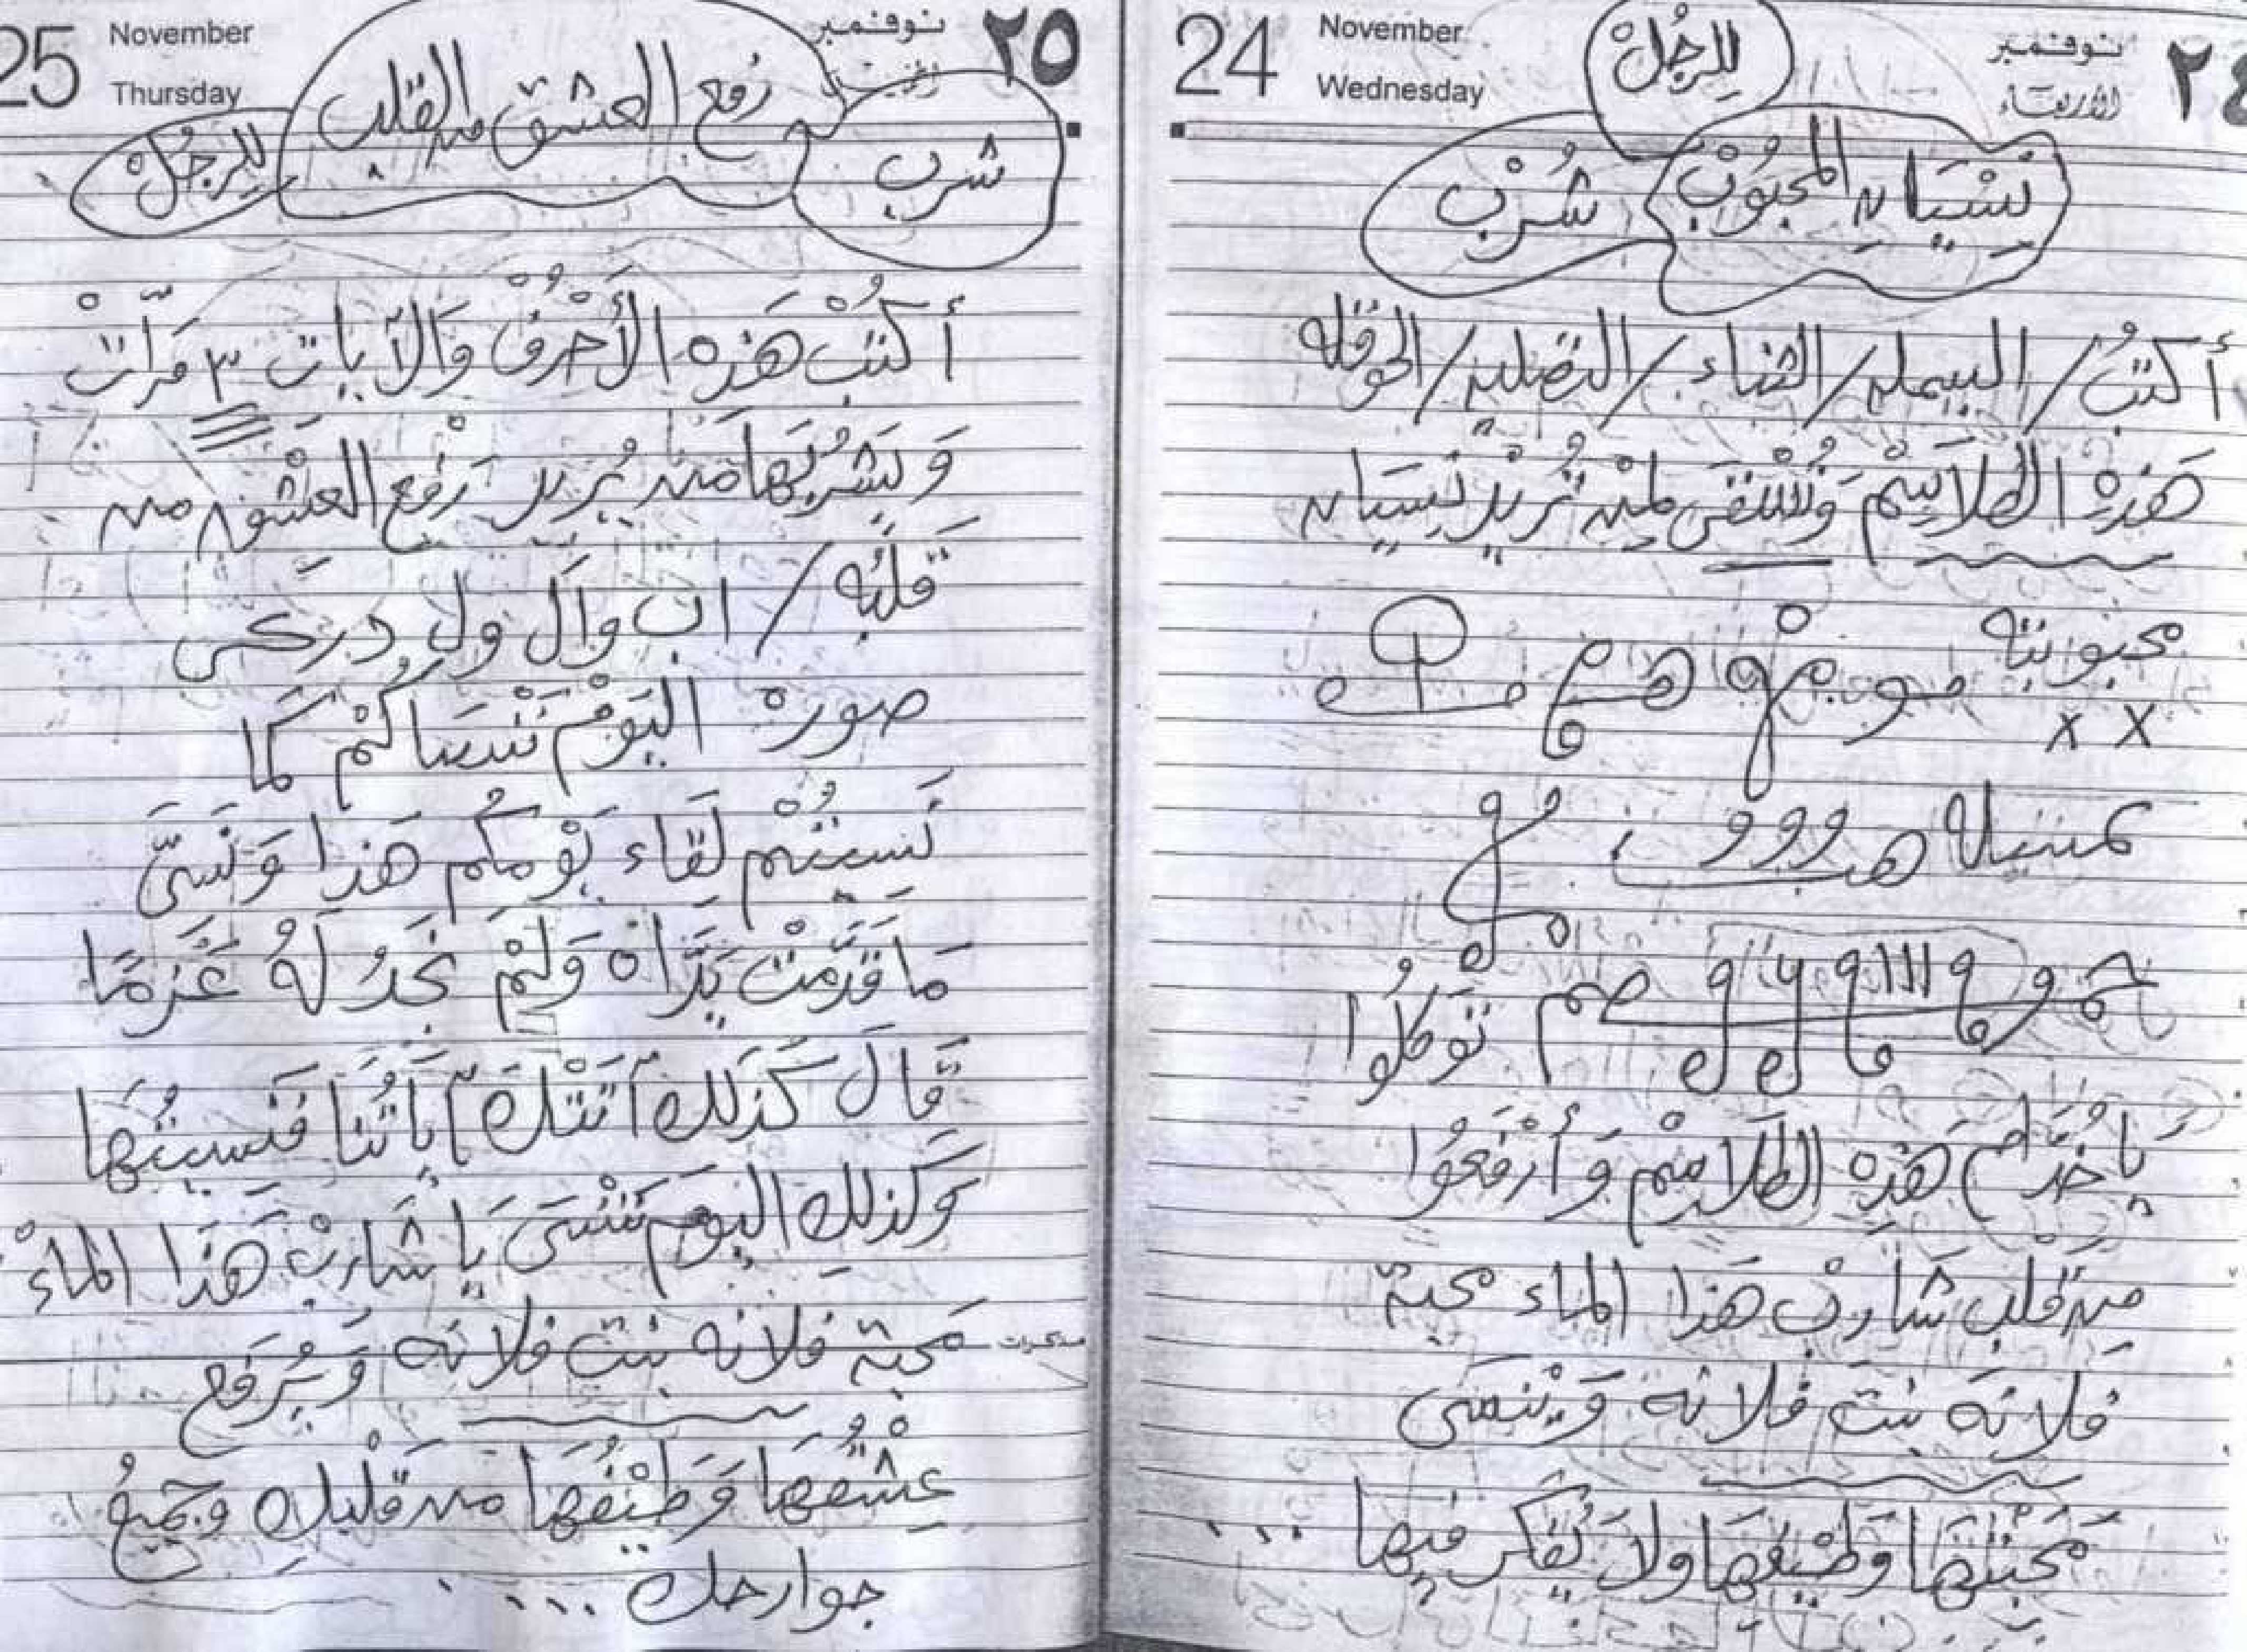 24 November نوفمبر ٢٤
Wednesday الأربعاء
للرجُلْ
نسْيَان المحبُوْبْ
شُرْبْ
أكتبُ / البسمله / الثناء / التصليه / الحوقله
هَذِهِ الطَلَاسِمْ وَتُسْقَى لِمَنْ تُرِيْدْ نِسيَان
محبوبته
x x
توَكلُوا
يا خُدَّام هَذِهِ الطَلَاسِمْ وَأرْفَعُوا
مِنْ قَلب شَاربْ هَذا الماء محبة
فلانَه بنت فلانه وَيَنسَى
مَحَبتْهَا وَطَيْفهَا ولا يُفَكر فيها ...
25 November نوفمبر ٢٥
Thursday
شرب
رفع العشق من القلب
للرجُلْ
أكتُبْ هَذه الأحْرُفْ وَالآيات ٣ مَرَّاتْ
وَيَشرُبهَا مَن يُريد رَفع العِشْق من
قَلبُهِ / اب وال ول درکس
صوره اليَوْمْ نَنْسَاكُمْ كَمَا
نَسيتُم لقَاء يَوْمكُم هَذا وَنَسىَّ
مَا قَدَّمَتْ يَدَاهْ وَلَمْ نَجدْ لَهُ عَزمًا
قَالَ كَذَلكَ أتَتْكَ آيَاتُنَا فَنَسيتُهَا
وَكَذلك اليَوْم تَنْسَى يَا شَاربْ هَذَا الماءْ
مذكرات
مَحَبة فلانه بنت فلانَه وَيُرْفَع
عِشْقُهَا وَطَيْفُهَا من قَلبك وجَميعُ
جوارحك ...